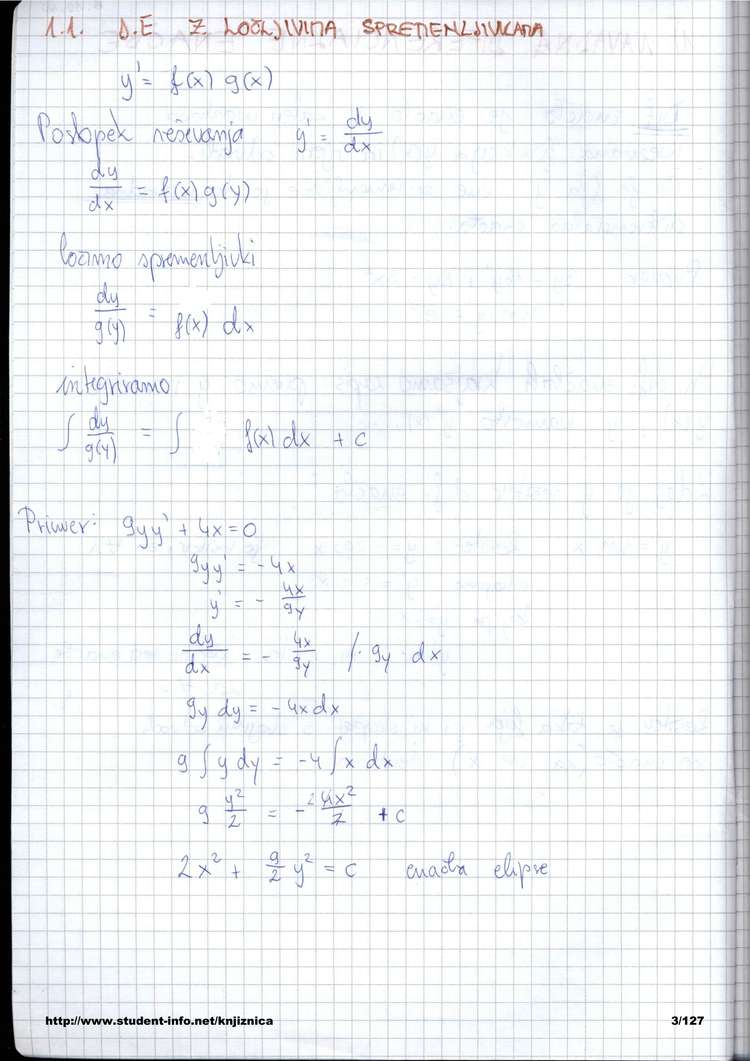 1.1. D.E Z LOČLJIVIMA SPREMENLJIVKAMA
y' = f(x) g(x)
Postopek reševanja y' = dy/dx
dy/dx = f(x) g(y)
ločimo spremenljivki
dy/g(y) = f(x) dx
integriramo
∫ dy/g(y) = ∫ f(x) dx + c
Primer: 9yy' + 4x = 0
9yy' = -4x
y' = - 4x/9y
dy/dx = - 4x/9y /· 9y dx
9y dy = -4x dx
9 ∫ y dy = -4 ∫ x dx
9 y²/2 = - 4x²/2 + c
2x² + 9/2 y² = c enačba elipse
http://www.student-info.net/knjiznica 3/127